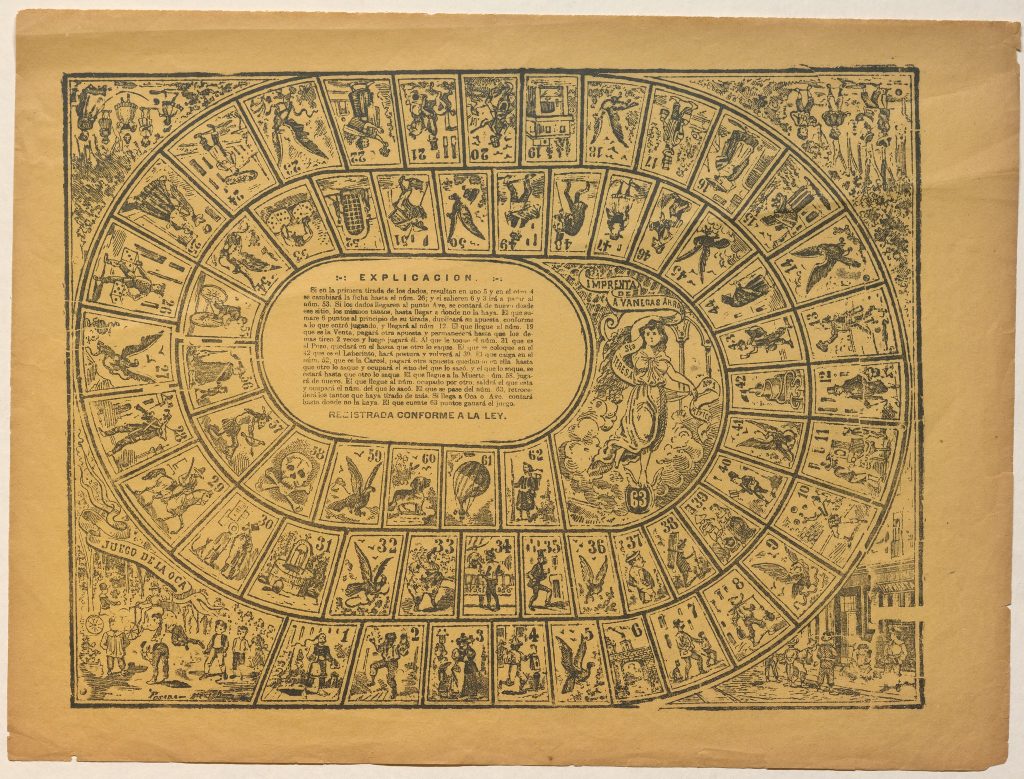 EXPLICACION.
Si en la primera tirada de los dados, resultan en uno 5 y en el otro 4
se cambiará la ficha hasta el núm. 26; y si salieren 6 y 3 irá a parar al
núm. 53. Si los dados llegaren al punto Ave, se contará de nuevo desde
ese sitio, los mismos tantos, hasta llegar a donde no la haya. El que su-
mare 6 puntos al principio de su tirada, duplicará su apuesta conforme
a lo que entró jugando, y llegará al núm 12. El que llegue al núm. 19
que es la Venta, pagará otra apuesta y permanecerá hasta que los de-
mas tiren 2 veces y luego jugará él. Al que le toque el núm. 31 que es
el Pozo, quedará en el hasta que otro lo saque. El que se coloque en el
42 que es el Laberinto, hará postura y volverá al 39. El que caiga en el
núm. 52, que es la Carcel, pagará otra apuesta quedando en ella hasta
que otro lo saque y ocupará el sitio del que lo sacó, y el que lo saque, se
estará hasta que otro lo saque. El que llegue a la Muerte núm. 58, juga-
rá de nuevo. El que llegue al núm. ocupado por otro, saldrá el que esta
y ocupará el núm. del que lo sacó. El que se pase del núm. 63, retroce-
derá los tantos que haya tirado de más. Si llega a Oca o Ave, contará
hasta donde no la haya. El que cuente 63 puntos ganará el juego.
REGISTRADA CONFORME A LA LEY.
IMPRENTA
DE
A. VANEGAS ARR
JUEGO DE LA OCA
1
2
3
4
5
6
7
8
9
10
11
15
16
17
18
19
20
21
22
24
25
26
28
29
30
31
32
33
34
35
36
37
38
39
40
41
44
45
47
48
49
50
51
52
53
57
58
59
60
61
62
63